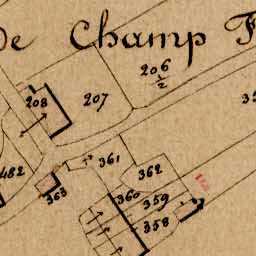 De Champ F
206
1/2
208
207
35
361
482
362
363
360
359
358